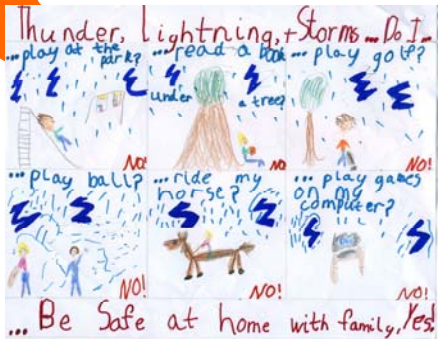 Thunder, Lightning, + Storms ... Do I ...
... play at the park?
NO!
... read a book
under a tree?
NO
... play golf?
NO!
... play ball?
NO!
... ride my horse?
NO!
... play games on my computer?
NO!
... Be Safe at home with family, Yes!